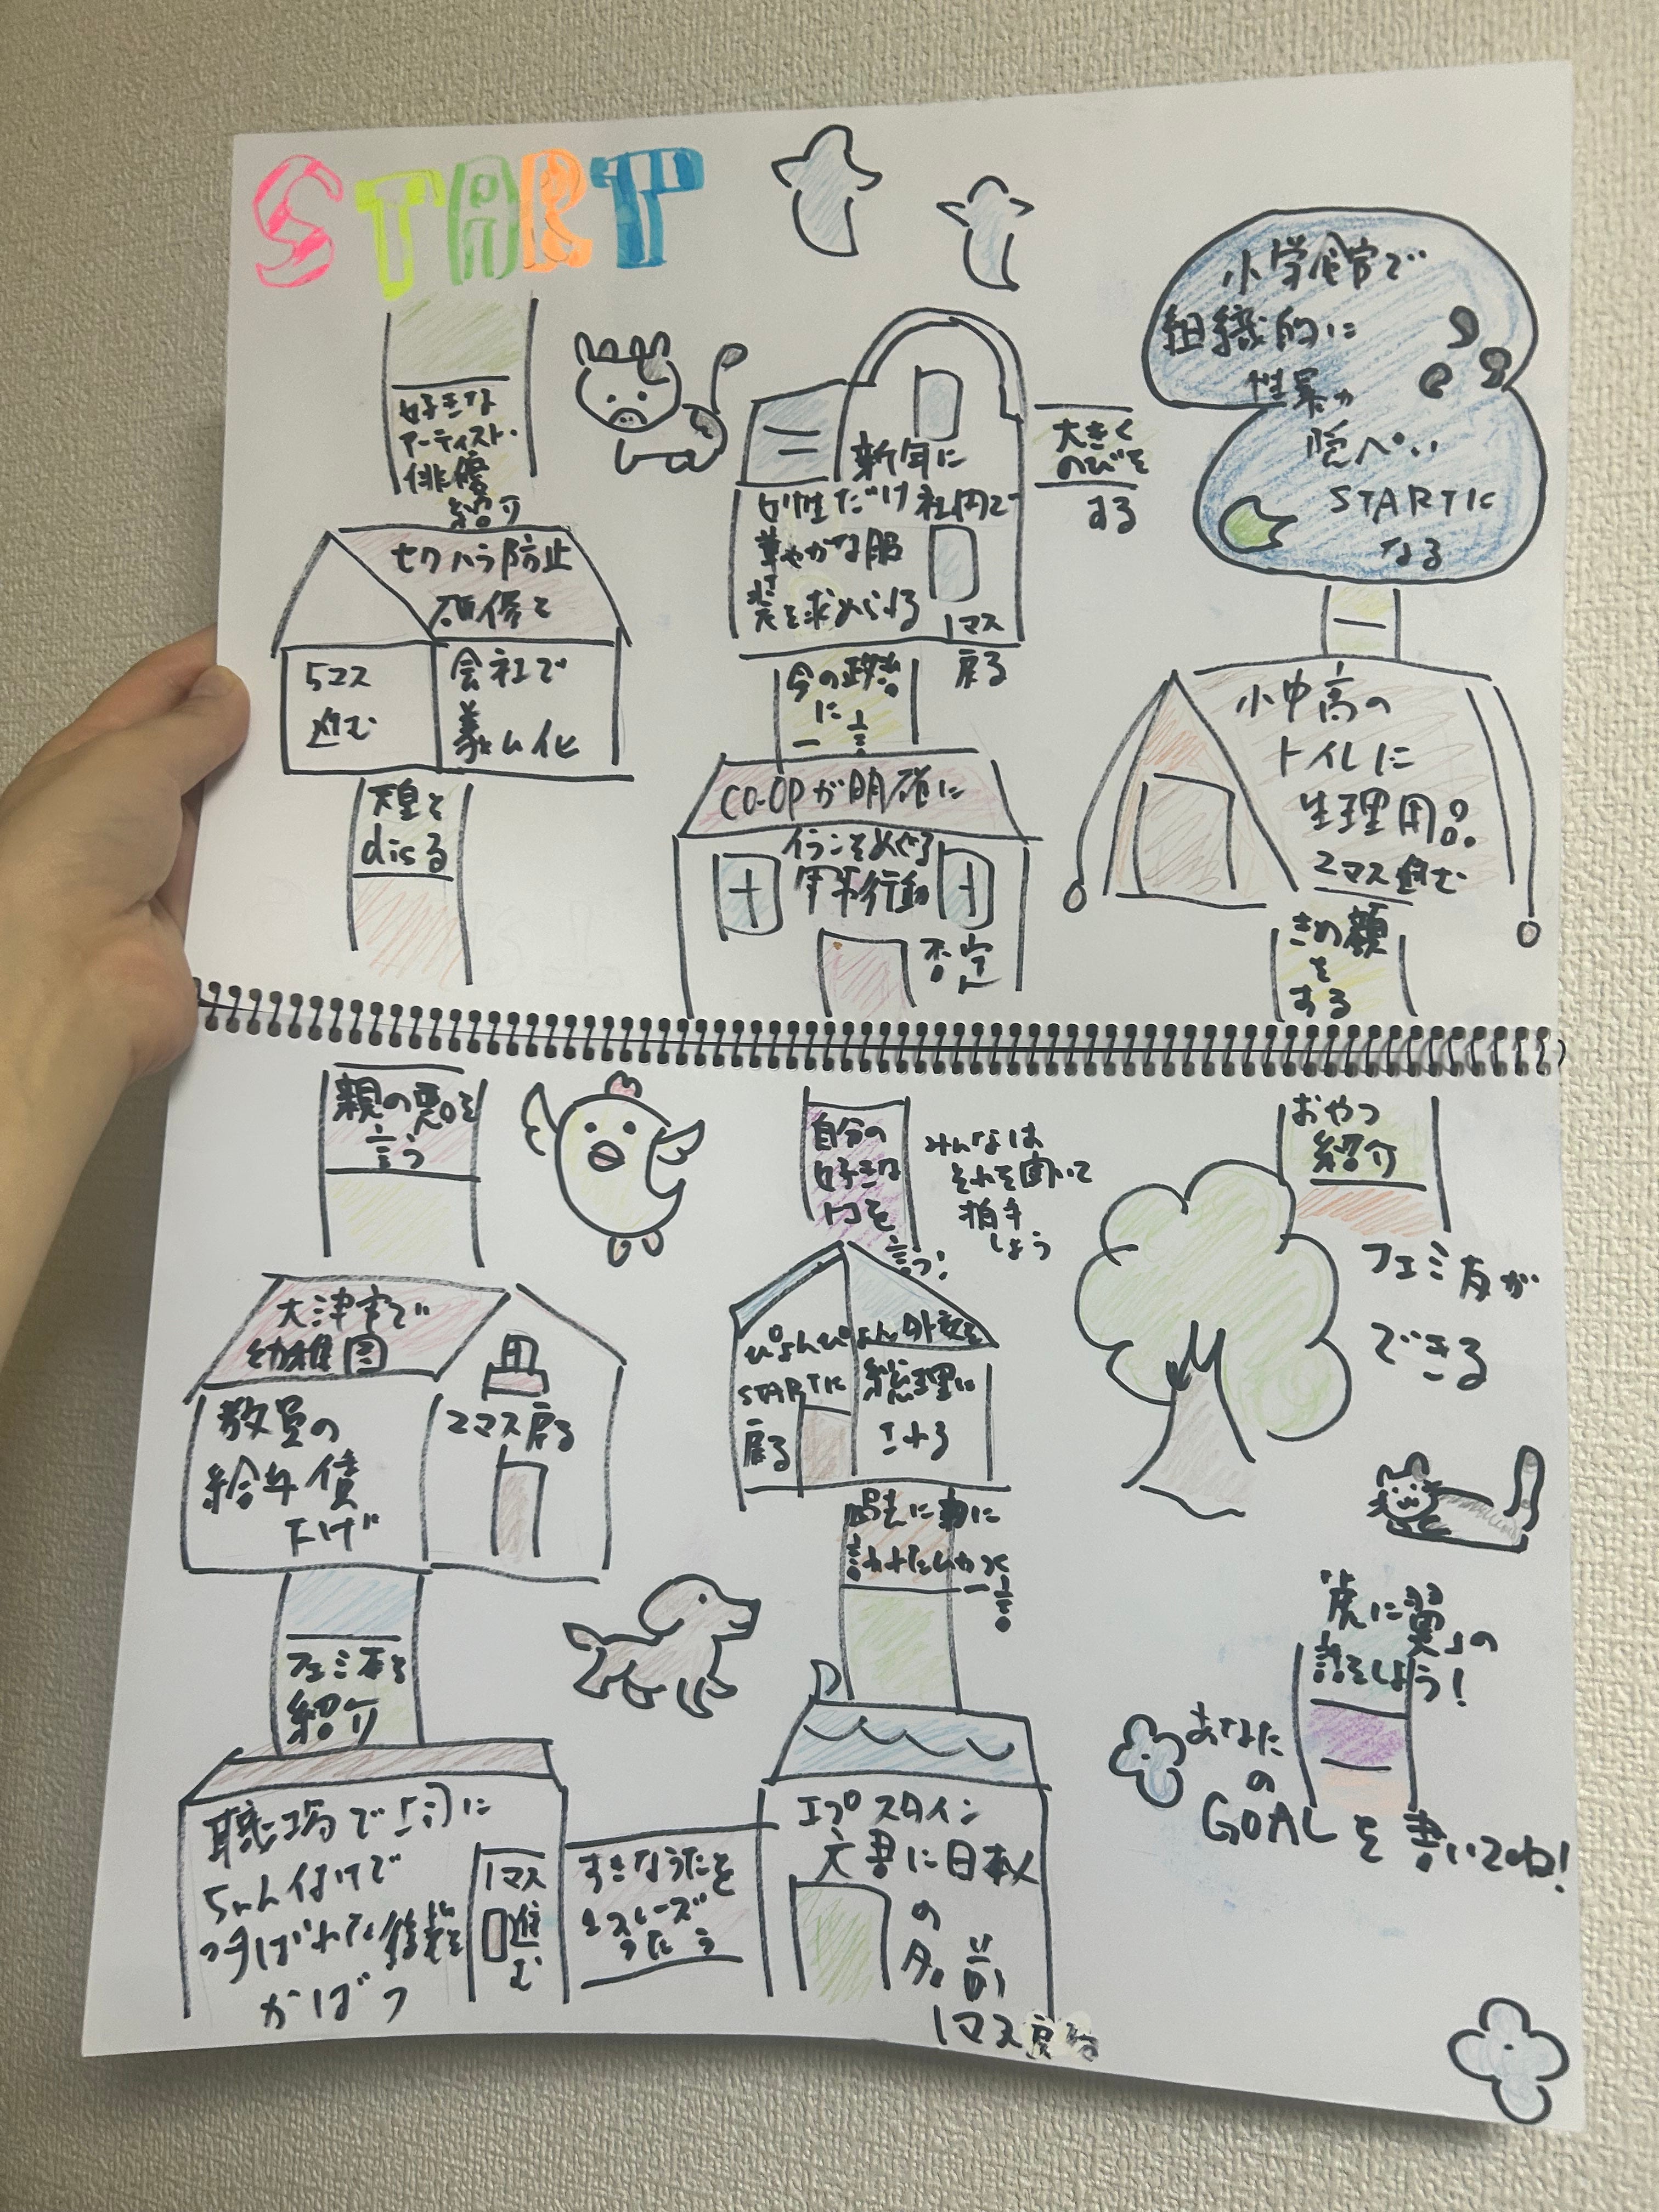 START
好きな
アーティスト・
俳優
紹介
セクハラ防止
研修を
会社で
義ム化
5コマ
進む
天皇を
disる
親の悪口を
言う
大津市で
幼稚園
教員の
給与賃
下げ
2マス戻る
フェミ本を
紹介
職場で上司に
ちゃん付けで
よばれた
がばつ
1マス
進む
すきなうたを
1フレーズ
うたう
エプスタイン
文書に日本人
の
名前
1マス戻る
明先に
言われたムカつく
一言
ぴょんぴょん外交を
総理に
STARTに
戻る
自分の
好きな
所を
言う!
みんなは
それを聞いて
拍手
しよう
CO-OPが明確に
行こをめぐる
軍事行動
否定
今の政治
に
一言
新年に
女性だけ社内で
華やかな服
装を求められる
1マス
戻る
大きく
のびを
する
小学館で
組織的に
性暴力
隠ぺい
STARTに
なる
小中高の
トイレに
生理用品
2マス進む
きめ顔
を
する
おやつ
紹介
フェミ友が
できる
「虎に翼」の
話をしよう!
あなた
の
GOALを書いてね!